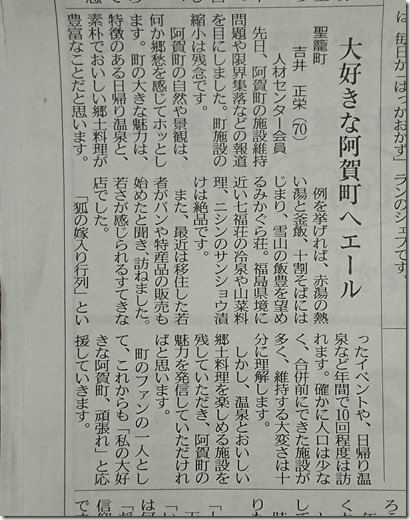 ランのシェフです。
大好きな阿賀町へエール
聖籠町
吉井 正栄(70)
人材センター会員
先日、阿賀町の施設維持
問題や限界集落などの報道
を目にしました。町施設の
縮小は残念です。
阿賀町の自然や景観は、
何か郷愁を感じてホッとし
ます。町の大きな魅力は、
特徴のある日帰り温泉と、
素朴でおいしい郷土料理が
豊富なことだと思います。
例を挙げれば、赤湯の熱
い湯と釜飯、十割そばには
じまり、雪山の飯豊を望め
るみかぐら荘。福島県境に
近い七福荘の冷泉や山菜料
理、ニシンのサンショウ漬
けは絶品です。
また、最近は移住した若
者がパンや特産品の販売も
始めたと聞き、訪ねました。
若さが感じられるすてきな
店でした。
「狐の嫁入り行列」とい
ったイベントや、日帰り温
泉など年間で10回程度は訪
れます。確かに人口は少な
く、合併前にできた施設が
多く、維持する大変さは十
分に理解します。
しかし、温泉とおいしい
郷土料理を楽しめる施設を
残していただき、阿賀町の
魅力を発信していただけれ
ばと思います。
町のファンの一人とし
て、これからも「私の大好
きな阿賀町、頑張れ」と応
援していきます。